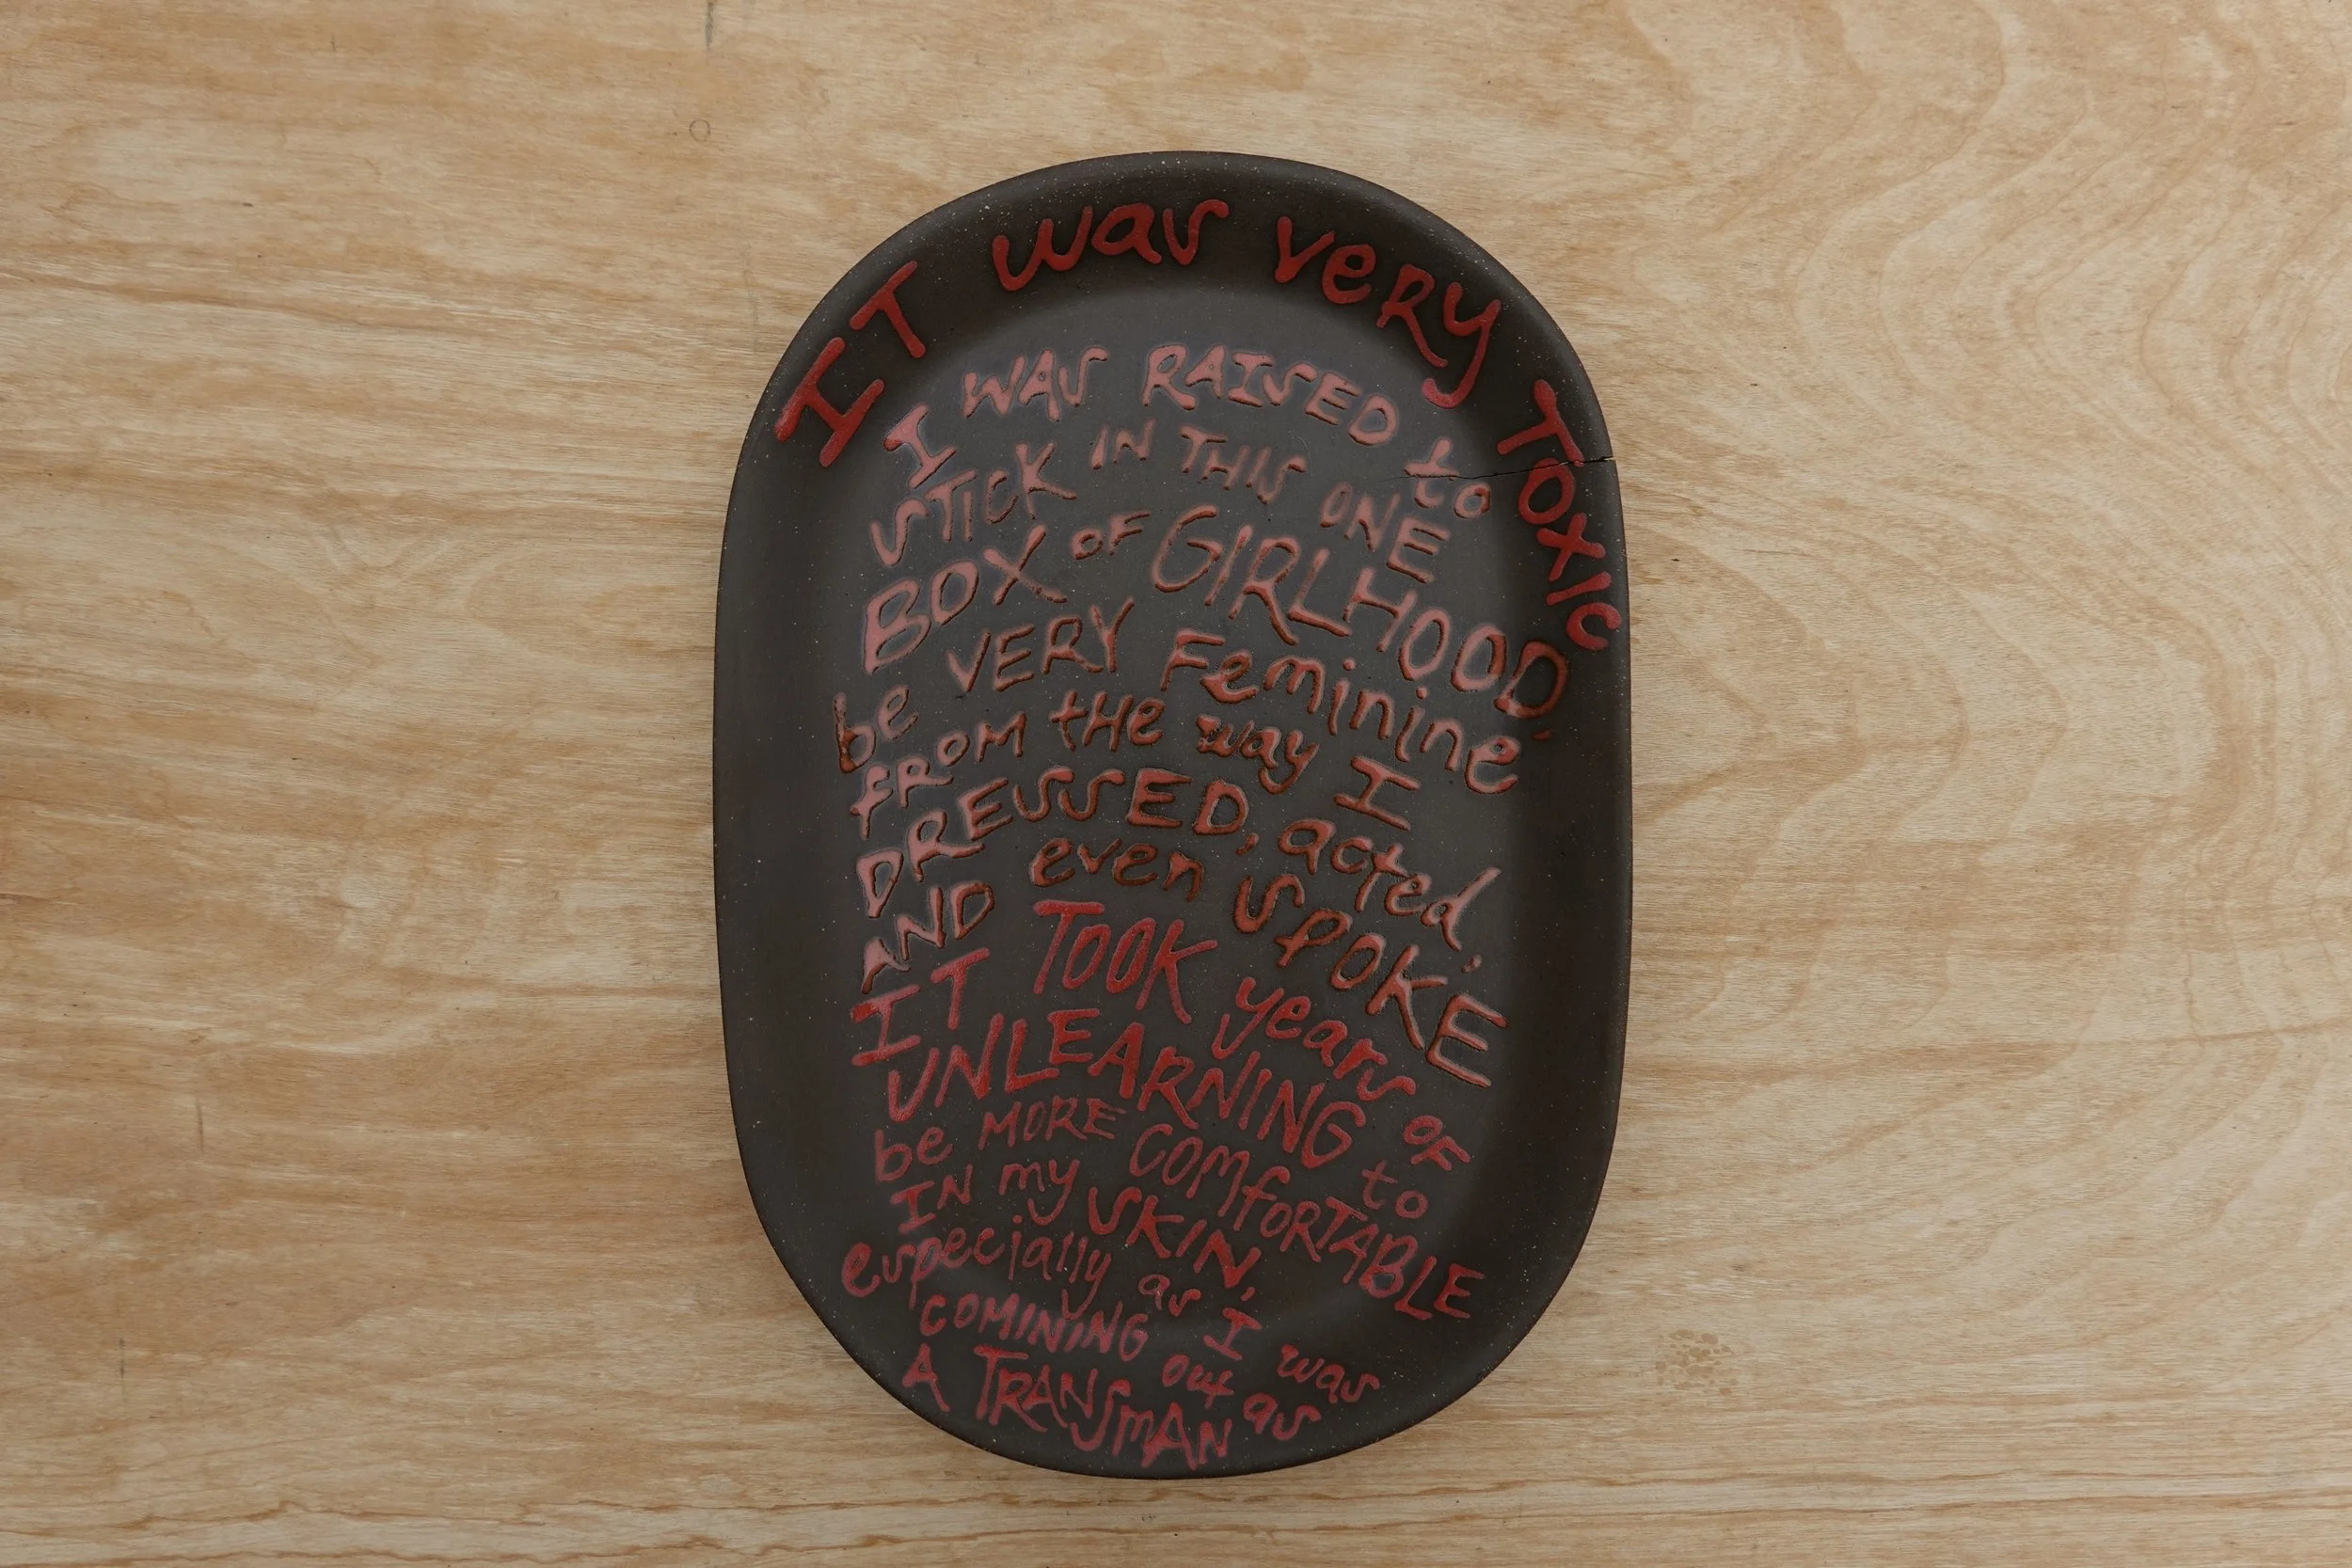 IT was very TOXIC
I WAS RAISED to
STICK IN THIS ONE
BOX OF GIRLHOOD,
be VERY Feminine
FROM tHe way I
DRESSED, acted,
AND even SPOKE
IT TOOK years OF
UNLEARNING to
be MORE COMfORTABLE
IN my SKIN,
especially as I was
COMINING out as
A TRANSMAN